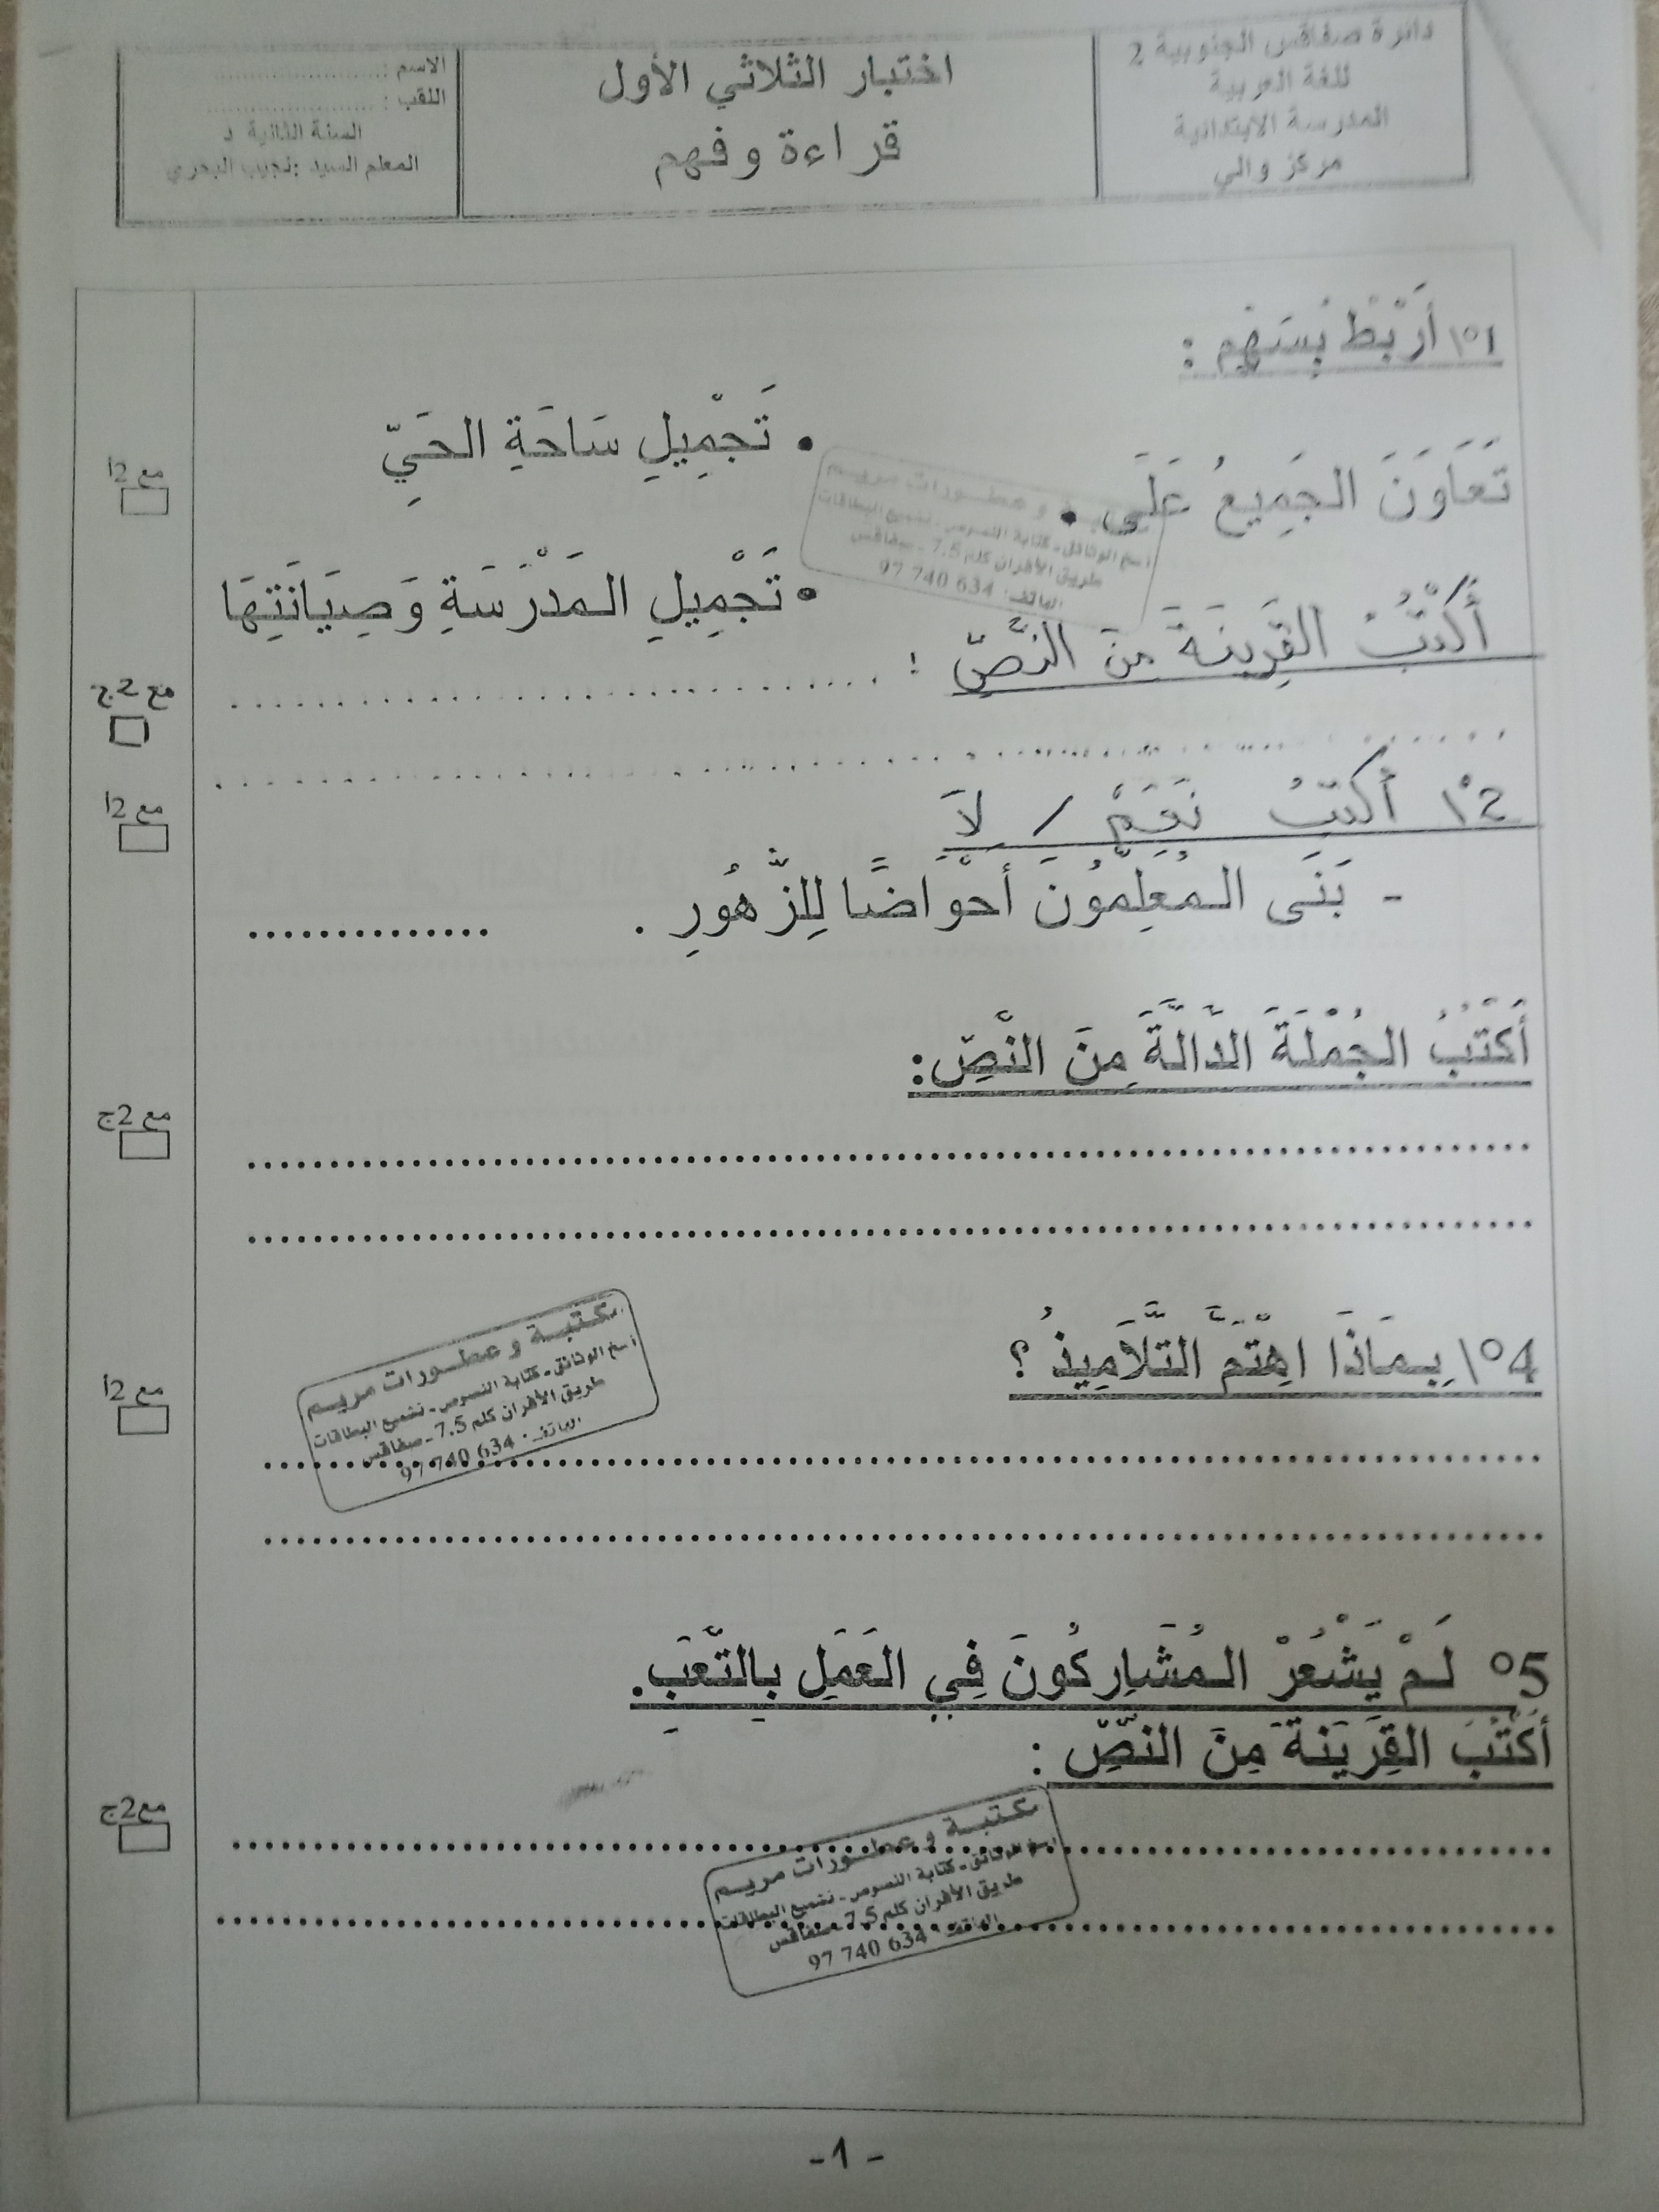 دائرة صفاقس الجنوبية 2
للغة العربية
المدرسة الابتدائية
مركز والي
اختبار الثلاثي الأول
قراءة وفهم
الاسم : ........................
اللقب : ........................
السنة الثانية د
المعلم السيد :نجيب البحري
1°\ أَرْبِطُ بِسَهْمٍ :
تَعَاوَنَ الجَمِيعُ عَلَى •
• تَجْمِيلِ سَاحَةِ الحَيِّ
• تَجْمِيلِ المَدْرَسَةِ وَصِيَانَتِهَا
مع 2أ
أَكْتُبُ القَرِينَةَ مِنَ النَّصِّ : ..............................
مع 2ج
2°\ أَكْتُبُ نَعَمْ / لاَ
مع 2أ
- بَنَى المُعَلِّمُونَ أَحْوَاضًا لِلزُّهُورِ . ..............
أَكْتُبُ الجُمْلَةَ الدَّالَّةَ مِنَ النَّصِّ:
مع 2ج
4°\ بِمَاذَا اهْتَمَّ التَّلاَمِيذُ ؟
مع 2أ
مكتبة و عطورات مريم
نسخ الوثائق - كتابة النصوص - تقميع البطاقات
طريق الأفران كلم 7.5 - صفاقس
الهاتف : 634 740 97
5° لَمْ يَشْعُرْ المُشَارِكُونَ فِي العَمَلِ بِالتَّعَبِ.
أَكْتُبُ القَرِينَةَ مِنَ النَّصِّ :
مع 2ج
مكتبة و عطورات مريم
نسخ الوثائق - كتابة النصوص - تقميع البطاقات
طريق الأفران كلم 7.5 - صفاقس
الهاتف : 634 740 97
- 1 -